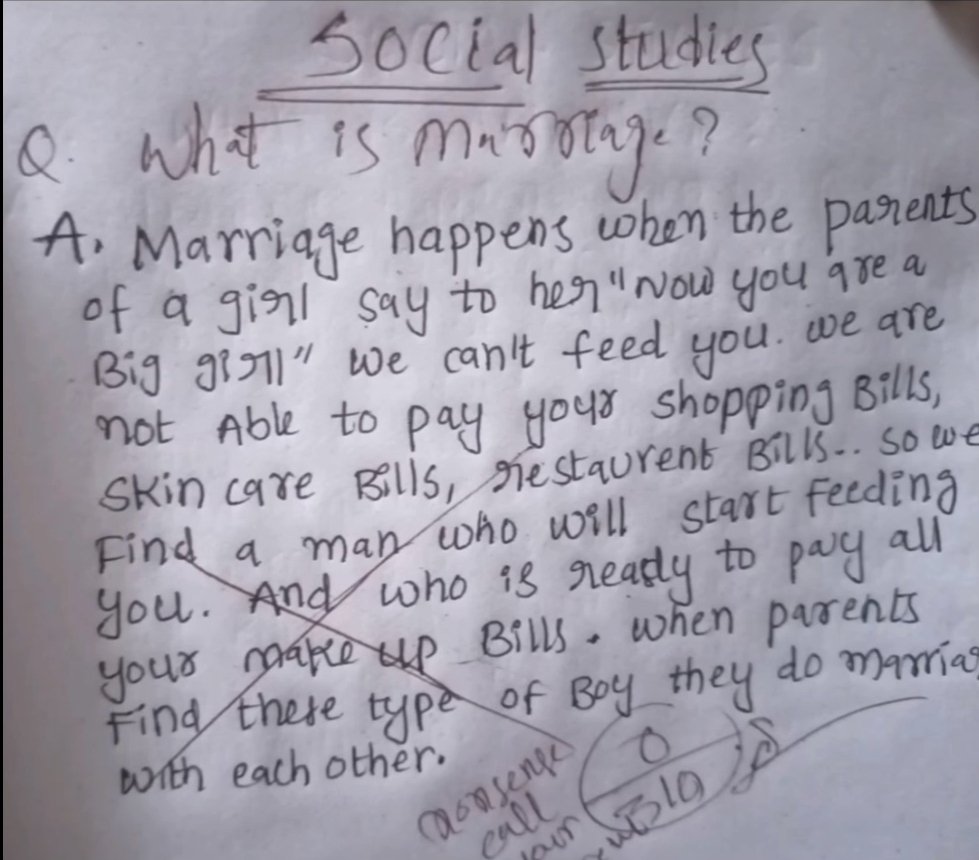 Social Studies
Q. What is Marriage?
A. Marriage happens when the parents
of a girl say to her "Now you are a
Big girl" we can't feed you. we are
not Able to pay your shopping Bills,
Skin care Bills, restaurent Bills.. so we
Find a man who will start feeding
you. And who is ready to pay all
your make up Bills. when parents
Find these type of Boy they do marriag
with each other.
0
nonsense
call
your